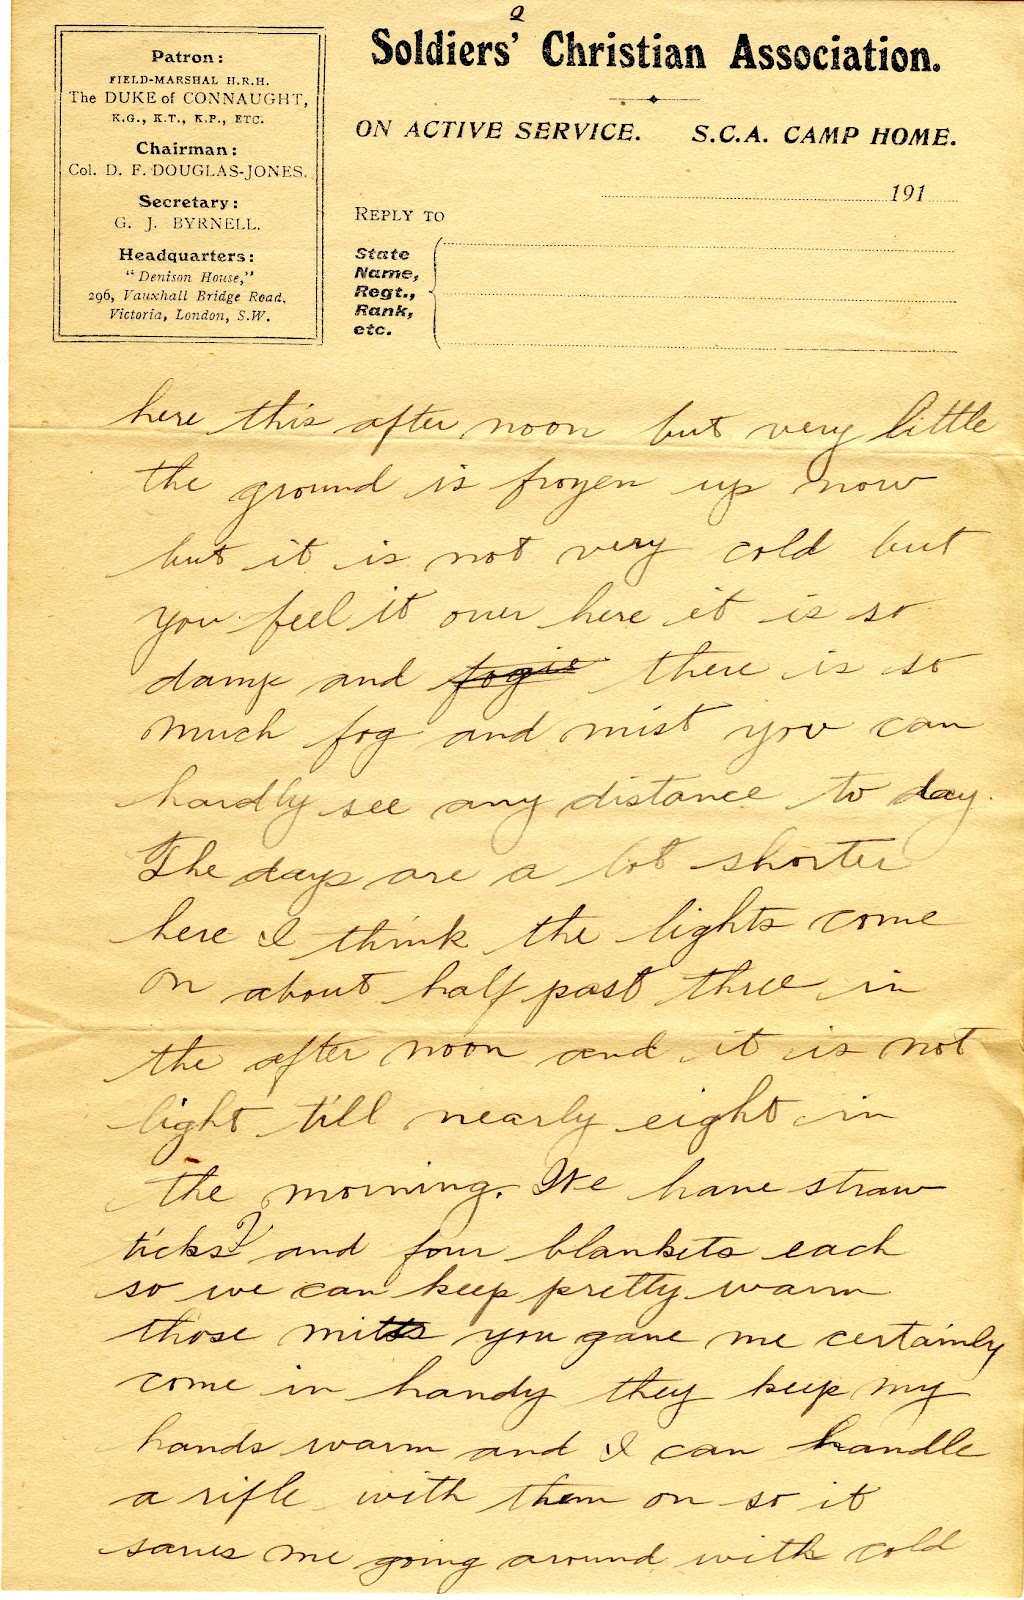 2
Soldiers' Christian Association.
ON ACTIVE SERVICE. S.C.A. CAMP HOME.
Patron:
FIELD-MARSHAL H.R.H.
The DUKE of CONNAUGHT,
K.G., K.T., K.P., ETC.
Chairman:
Col. D. F. DOUGLAS-JONES.
Secretary:
G. J. BYRNELL.
Headquarters:
"Denison House,"
296, Vauxhall Bridge Road,
Victoria, London, S.W.
191
REPLY TO
State
Name,
Regt.,
Rank,
etc.
here this after noon but very little
the ground is frozen up now
but it is not very cold but
you feel it over here it is so
damp and fogie there is so
much fog and mist you can
hardly see any distance to day.
The days are a lot shorter
here I think the lights come
on about half past three in
the after noon and it is not
light till nearly eight in
the morning. We have straw
ticks? and four blankets each
so we can keep pretty warm
those mitts you gave me certainly
come in handy they keep my
hands warm and I can handle
a rifle with them on so it
saves me going around with cold